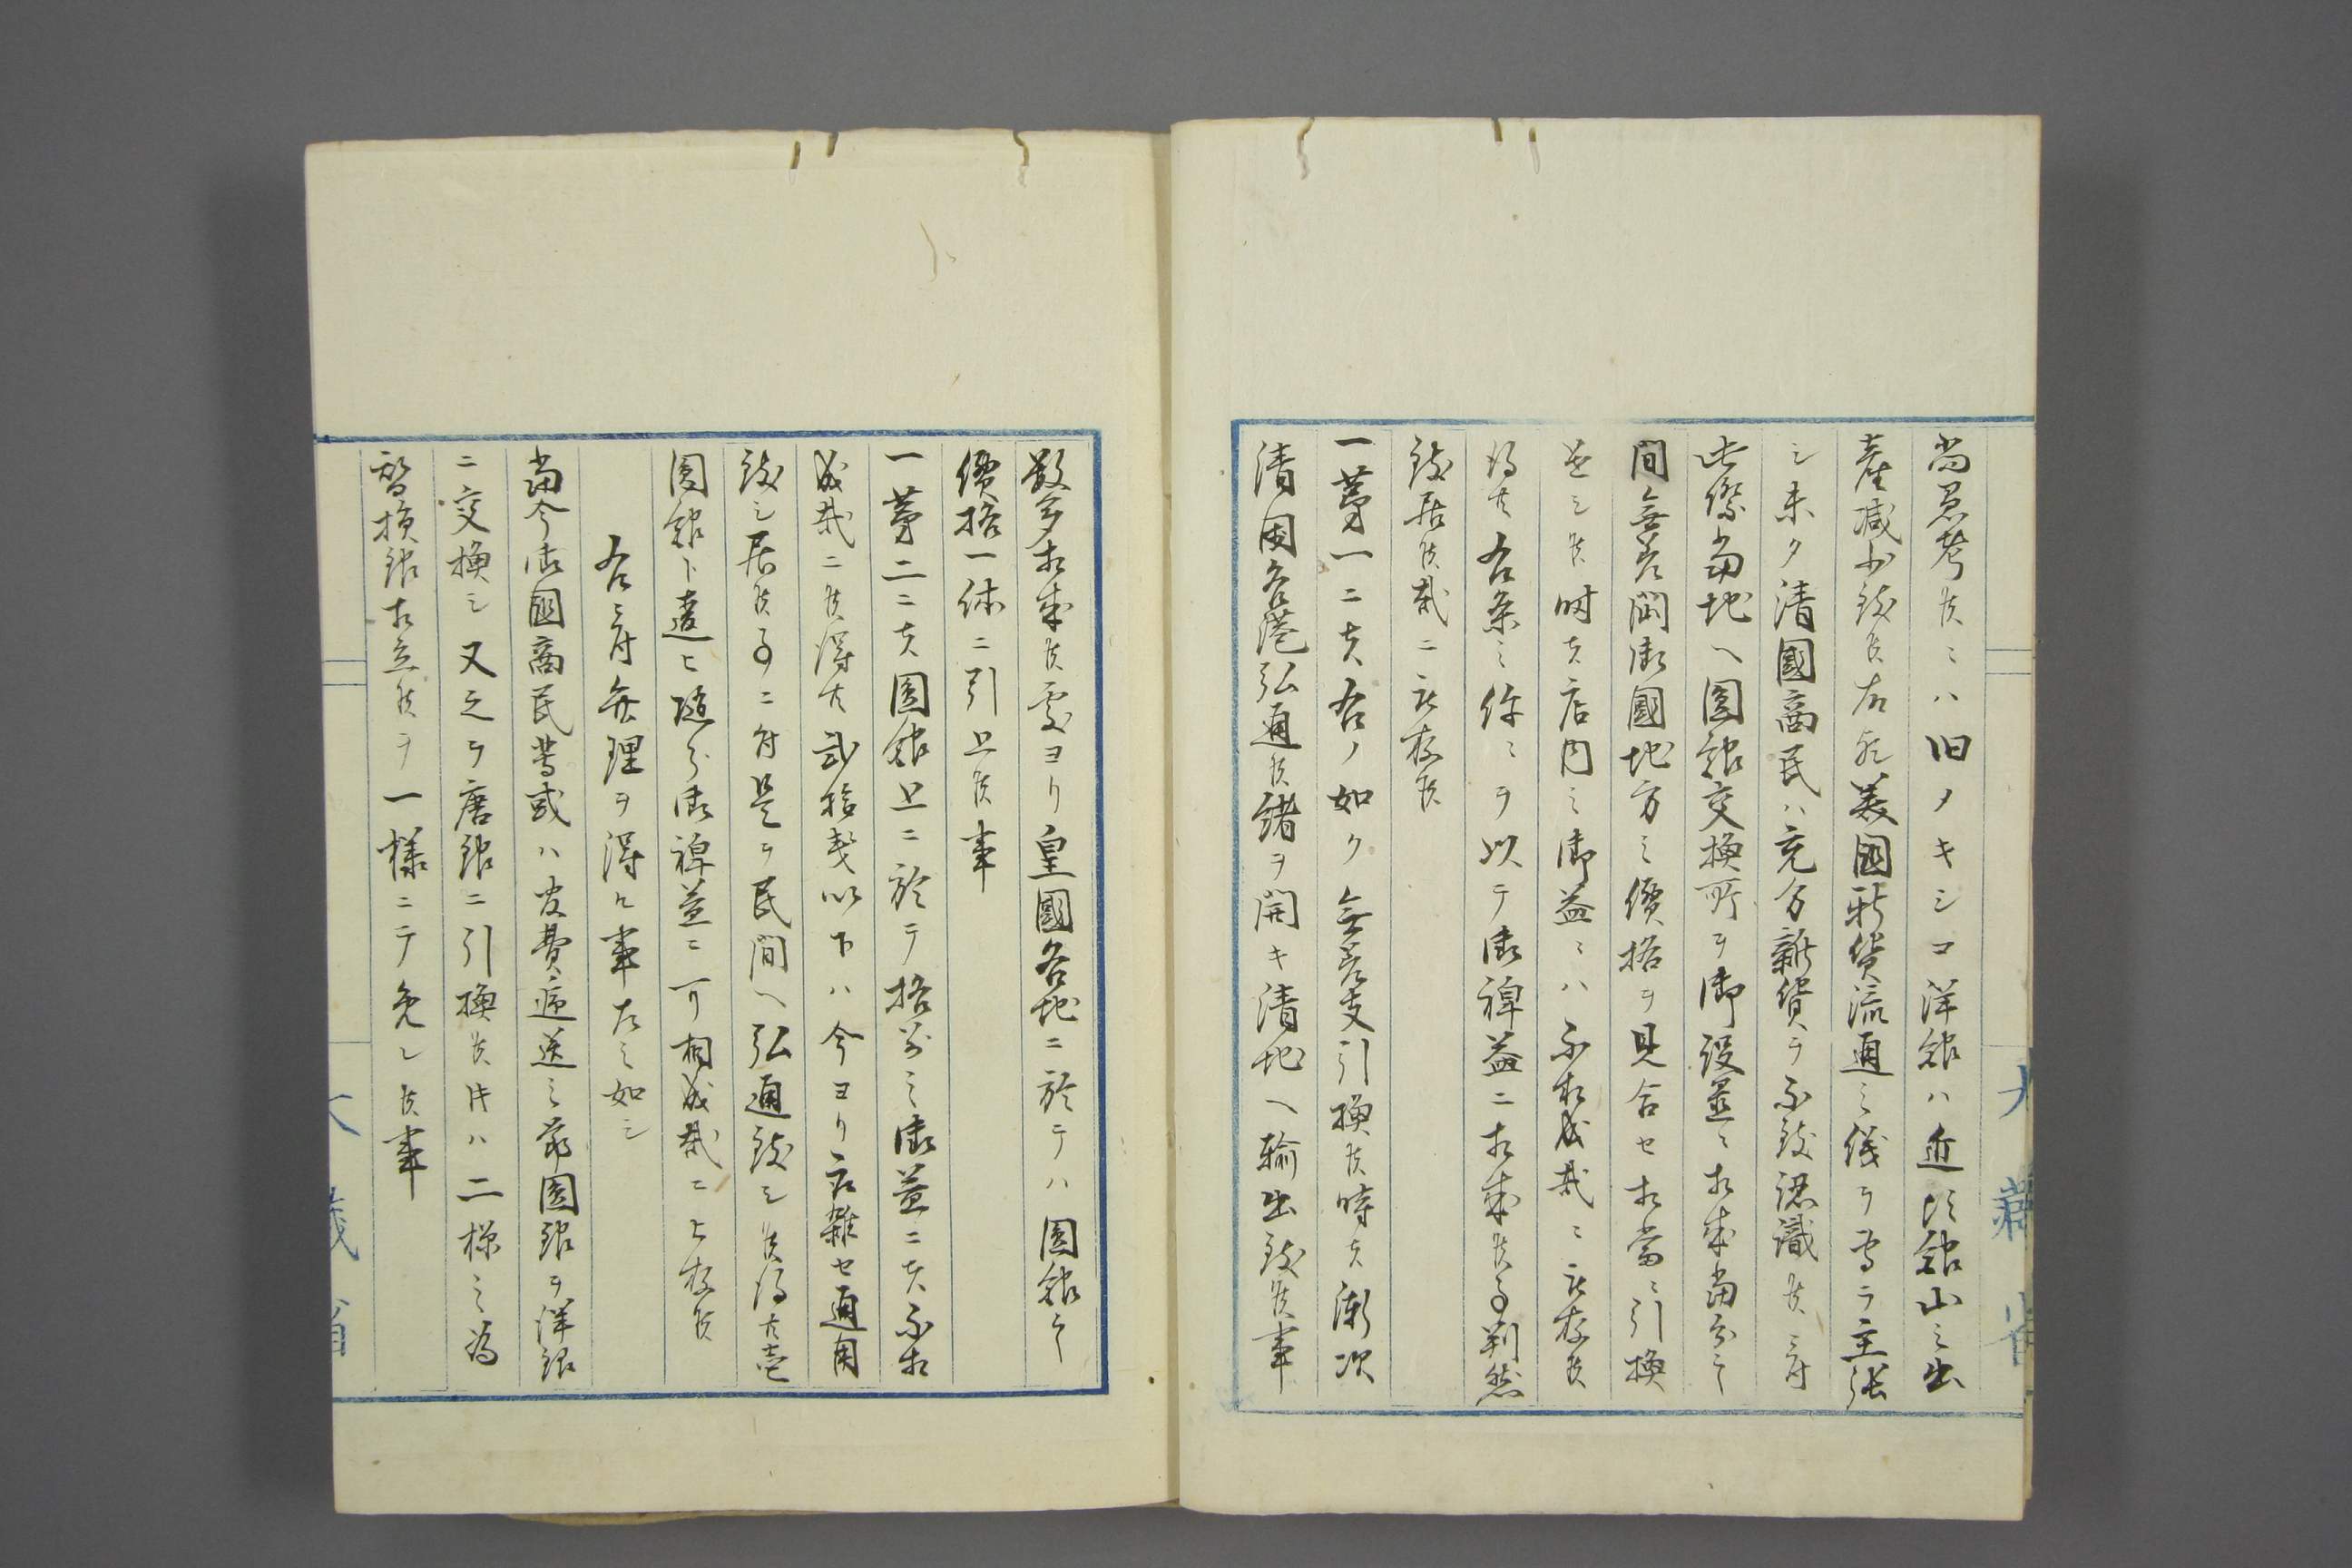 尚愚考候ニハ旧メキシコ洋銀ハ近頃銀山之出
産減少致候故美國新貨流通之儀ヲ専ラ主張
シ来タ清國商民ハ充分新貨ヲ不致認識候ニ付
此際当地ヘ圓銀交換所ヲ御設置ニ相成当分之
間無差開御國地方之價格ヲ見合セ相当ニ引換
候時者店内之御益ニハ不相成哉ニ被存候
得共右条之件々ヲ以テ御裨益ニ相成候事判然
致居候哉ニ被存候
一第一ニ者右ノ如ク無差支引換候時者漸次
清国各港弘通候緒ヲ開キ清地ヘ輸出致候事
数多相成候處ヨリ皇國各地ニ於テハ圓銀之
價格一体ニ引上候事
一第二ニ者圓銀上ニ於テ格別之御益ニ者不相
成哉ニ候得共弐拾銭以下ハ今ヨリ混雑セ通用
致シ居候事ニ付是ヲ民間ヘ弘通致シ候得共壱
圓銀ト違ヒ随分御裨益ニ可相成哉ニ被存候
右ニ付弁理ヲ得ル事左之如シ
当今御國商民等或ハ官費逓送之節圓銀ヲ洋銀
ニ交換シ又之ヲ唐銀ニ引換候時ハ二様之為
替損銀相立候ヲ一様ニテ免レ候事
大蔵省
大蔵省